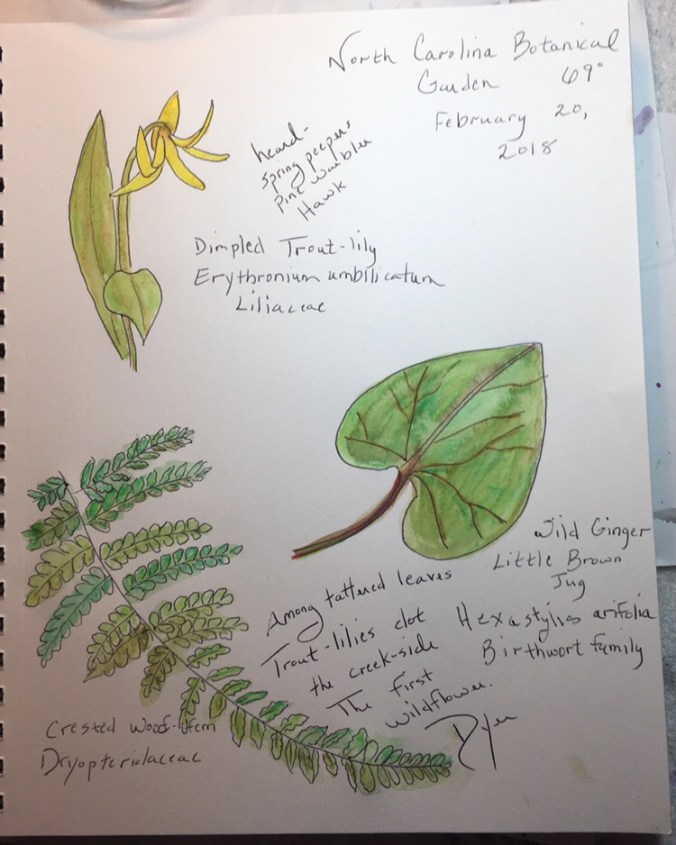 North Carolina Botanical
Garden 69°
February 20,
2018
heard-
spring peepers
pine warbler
Hawk
Dimpled Trout-lily
Erythronium umbilicatum
Liliaceae
Wild Ginger
Little Brown
Jug
Hexastylis arifolia
Birthwort family
Among tattered leaves
Trout-lilies dot
the creek-side
The first
wildflower.
Dyer
Crested Wood-fern
Dryopteridaceae